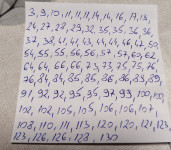 3, 9, 10, 11, 11, 11, 14, 14, 16, 17, 18,
24, 27, 28, 29, 32, 35, 35, 36, 36,
37, 38, 41, 41, 43, 44, 44, 46, 47, 50,
54, 55, 55, 55, 56, 56, 57, 57, 60, 62,
64, 64, 66, 66, 73, 73, 75, 75, 76,
76, 84, 84, 85, 85, 86, 86, 88, 89,
91, 92, 92, 95, 95, 97, 99, 100, 100,
102, 102, 105, 105, 106, 106, 107,
108, 110, 111, 113, 120, 120, 121, 123,
123, 126, 126, 128, 130